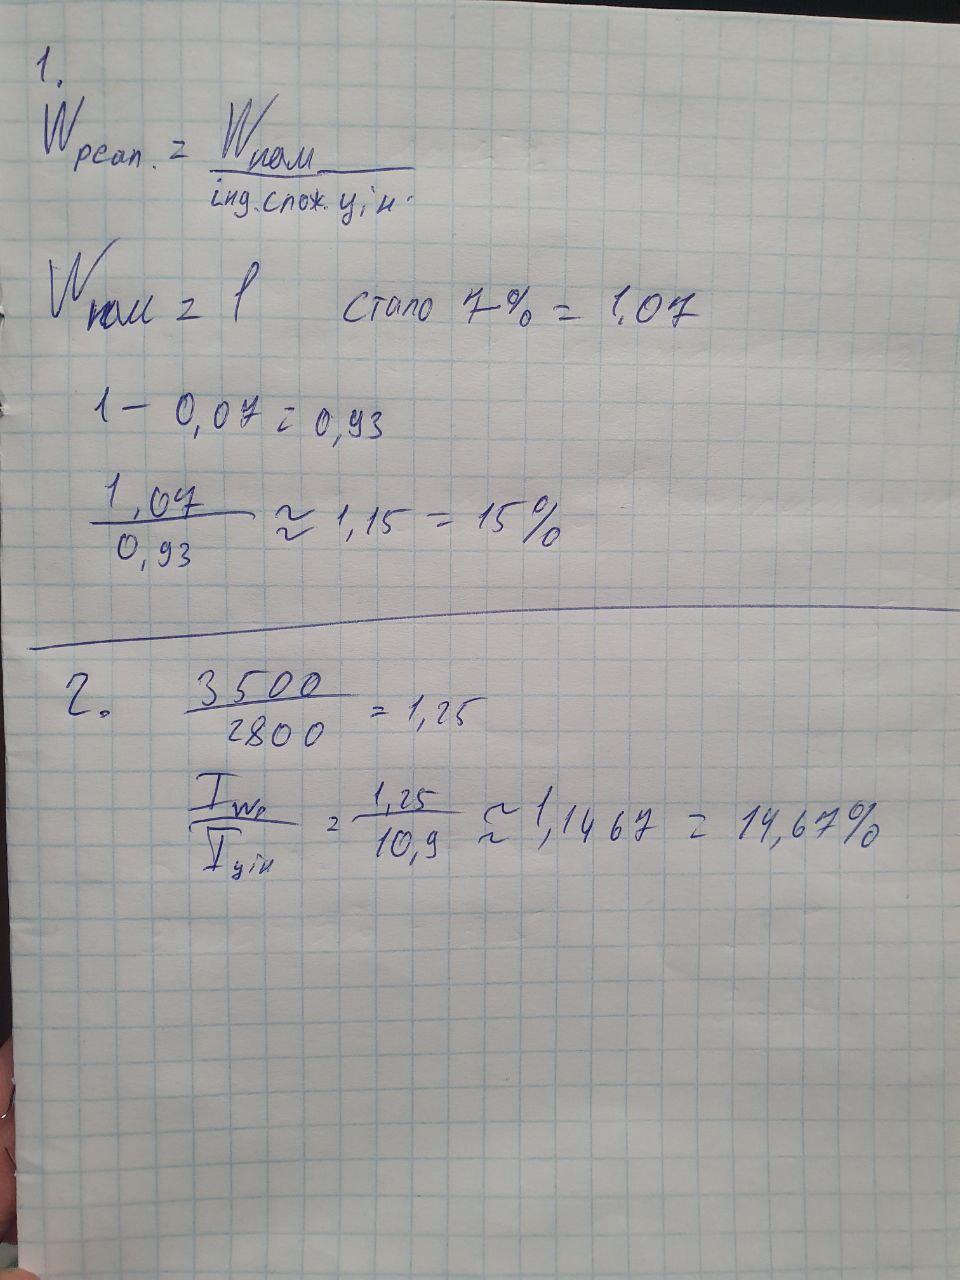 1.
Wреал. = Wном / інд.спож.цін.
Wном = 1 стало 7% = 1,07
1 - 0,07 = 0,93
1,07 / 0,93 ≈ 1,15 = 15%
2. 3500 / 2800 = 1,25
Iwр / Iцін = 1,25 / 10,9 ≈ 1,1467 = 14,67%